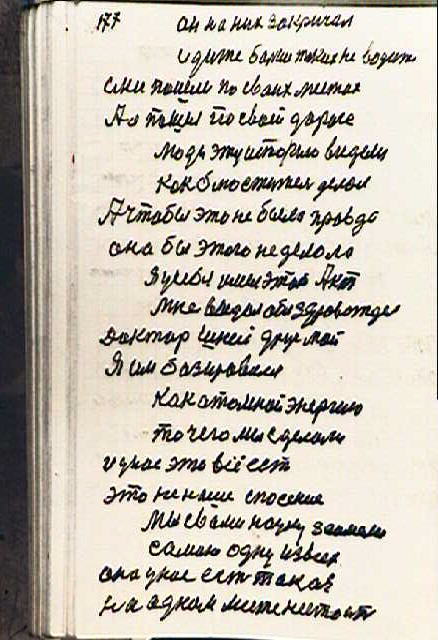 177 он на них закричал
идите были такие не водит
они пошли по своих местах
А я пошел по своей дороге
люди эту историю видели
как блюститель делал
А чтобы это не было правда
она бы этого не делала
Я у себя имел этот Акт
мне выдал обл здравотдел
доктор иней другмой
Я им базировался
как атомной энергию
то чего мы сделали
у днае это всё ест
это не наше спосение
Мы свами науку занели
самаю одну извсех
она унас ест такая
на адном мисте нистоит